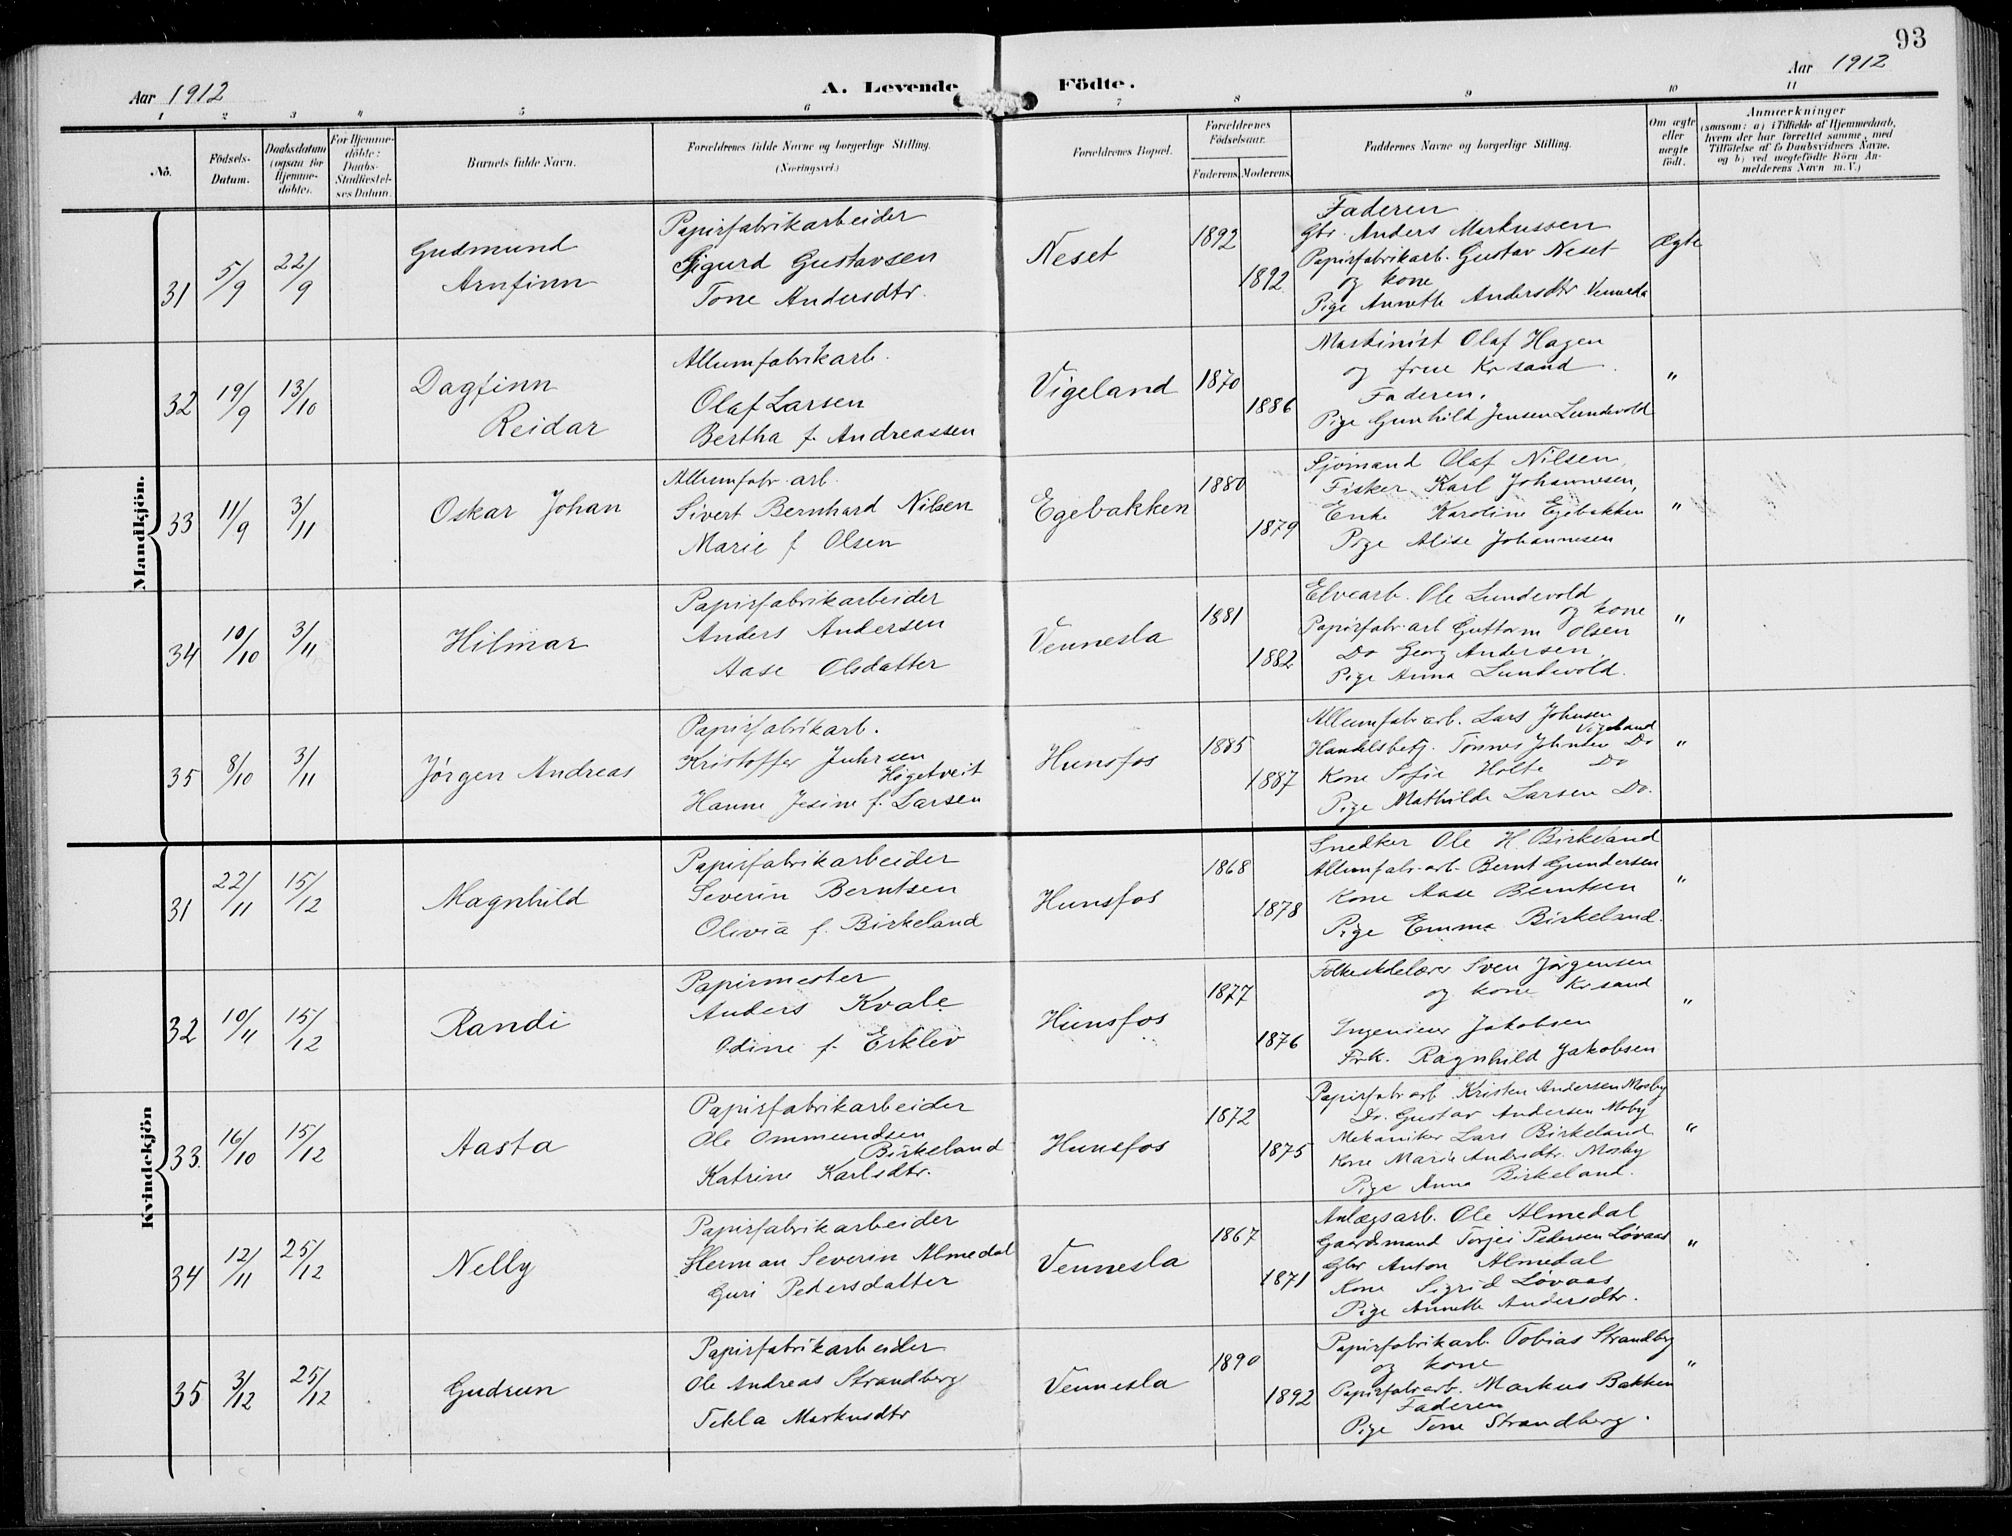 93
Aar 1912
A. Levende Födte.
Aar 1912
1 2 3 4 5 6 7 8 9 10 11
No.
Födsels-Datum.
Daabsdatum (ogsaa for Hjemme-döbte).
For Hjemme-döbte: Daabs-Stadfæstel-ses Datum.
Barnets fulde Navn.
Forældrenes fulde Navne og borgerlige Stilling.
(Næringsvei.)
Forældrenes Bopæl.
Forældrenes Födselsaar.
Faderens. Moderens.
Faddernes Navne og borgerlige Stilling.
Om ægte eller uægte födt.
Anmærkninger
(saasom: a) i Tilfælde af Hjemmedaab,
hvem der har forrettet samme, med
Tilföielse af to Daabsvidners Navne.
og b) ved uægtefödte Börn An-
melderens Navn m. V.)
Mandkjön.
31 5/9 22/9
Gudmund
Arnfinn
Papirfabrikarbeider
Sigurd Gustavsen
Tone Andersdtr.
Neset
1892
1892
Faderen
Gbr. Anders Markussen
Papirfabrikarb. Gustav Neset
og kone
Pige Annette Andersdtr Vennesla
Ægte
32 19/9 13/10
Dagfinn
Reidar
Allumfabrikarb.
Olaf Larsen
Bertha f. Andreassen
Vigeland
1870
1886
Maskinist Olaf Hagen
og frue Kr.sand.
Faderen.
Pige Gunhild Jensen Lundevold
"
33 11/9 3/11
Oskar Johan
Allumfabr. arb.
Sivert Bernhard Nilsen
Marie f. Olsen
Egebakken
1880
1879
Sjömand Olaf Nilsen,
Fisker Karl Johannesen,
Enke Karoline Egebakken
Pige Alise Johannesen
"
34 10/10 3/11
Hilmar
Papirfabrikarbeider
Anders Andersen
Aase Olsdatter
Vennesla
1881
1882
Elvearb. Ole Lundevold
og kone
Papirfabr. arb Guttorm Olsen
Do Georg Andersen.
Pige Anna Lundevold.
"
35 8/10 3/11
Jørgen Andreas
Papirfabrikarb.
Kristoffer Juhrsen
Høgetveit
Hanne Jesine f. Larsen
Hunsfos
1885
1887
Allumfabr arb. Lars Johnsen
Vigeland
Handelsbetj. Tønnes Johnsen Do
Kone Sofie Holte Do
Pige Mathilde Larsen Do.
"
Kvindekjön
31 22/11 15/12
Magnhild
Papirfabrikarbeider
Severin Berntsen
Olivia f. Birkeland
Hunsfos
1868
1878
Snedker Ole H. Birkeland
Allumfabr. arb. Bernt Gundersen
Kone Aase Berntsen
Pige Emma Birkeland.
"
32 10/11 15/12
Randi
Papirmester
Anders Kvale
Odine f. Erklev
Hunsfos
1877
1876
Folkeskolelærer Sven Jørgensen
og kone Kr sand
Ingeniør Jakobsen
Frk. Ragnhild Jakobsen
"
33. 16/10 15/12
Aasta
Papirfabrikarbeider
Ole Ommundsen
Birkeland
Katrine Karlsdtr.
Hunsfos
1872
1875
Papirfabr arb Kristen Andersen Mosby
Do. Gustav Andersen Mosby
Mekaniker Lars Birkeland
Kone Marie Andersdtr. Mosby
Pige Anna Birkeland.
"
34 12/11 25/12
Nelly
Papirfabrikarbeider
Herman Severin Almedal
Guri Pedersdatter
Vennesla
1867
1871
Anlægsarb. Ole Almedal
Gaardmand Torjei Pedersen Løvaas
Gbr Anton Almedal
Kone Sigrid Løvaas
Pige Annette Andersdtr.
"
35 3/12 25/12
Gudrun
Papirfabrikarbeider
Ole Andreas Strandberg
Tekla Markusdtr
Vennesla
1890
1892
Papirfabrikarb. Tobias Strandberg
og kone
Papirfabr arb. Markus Bakken
Faderen
Pige Tone Strandberg.
"